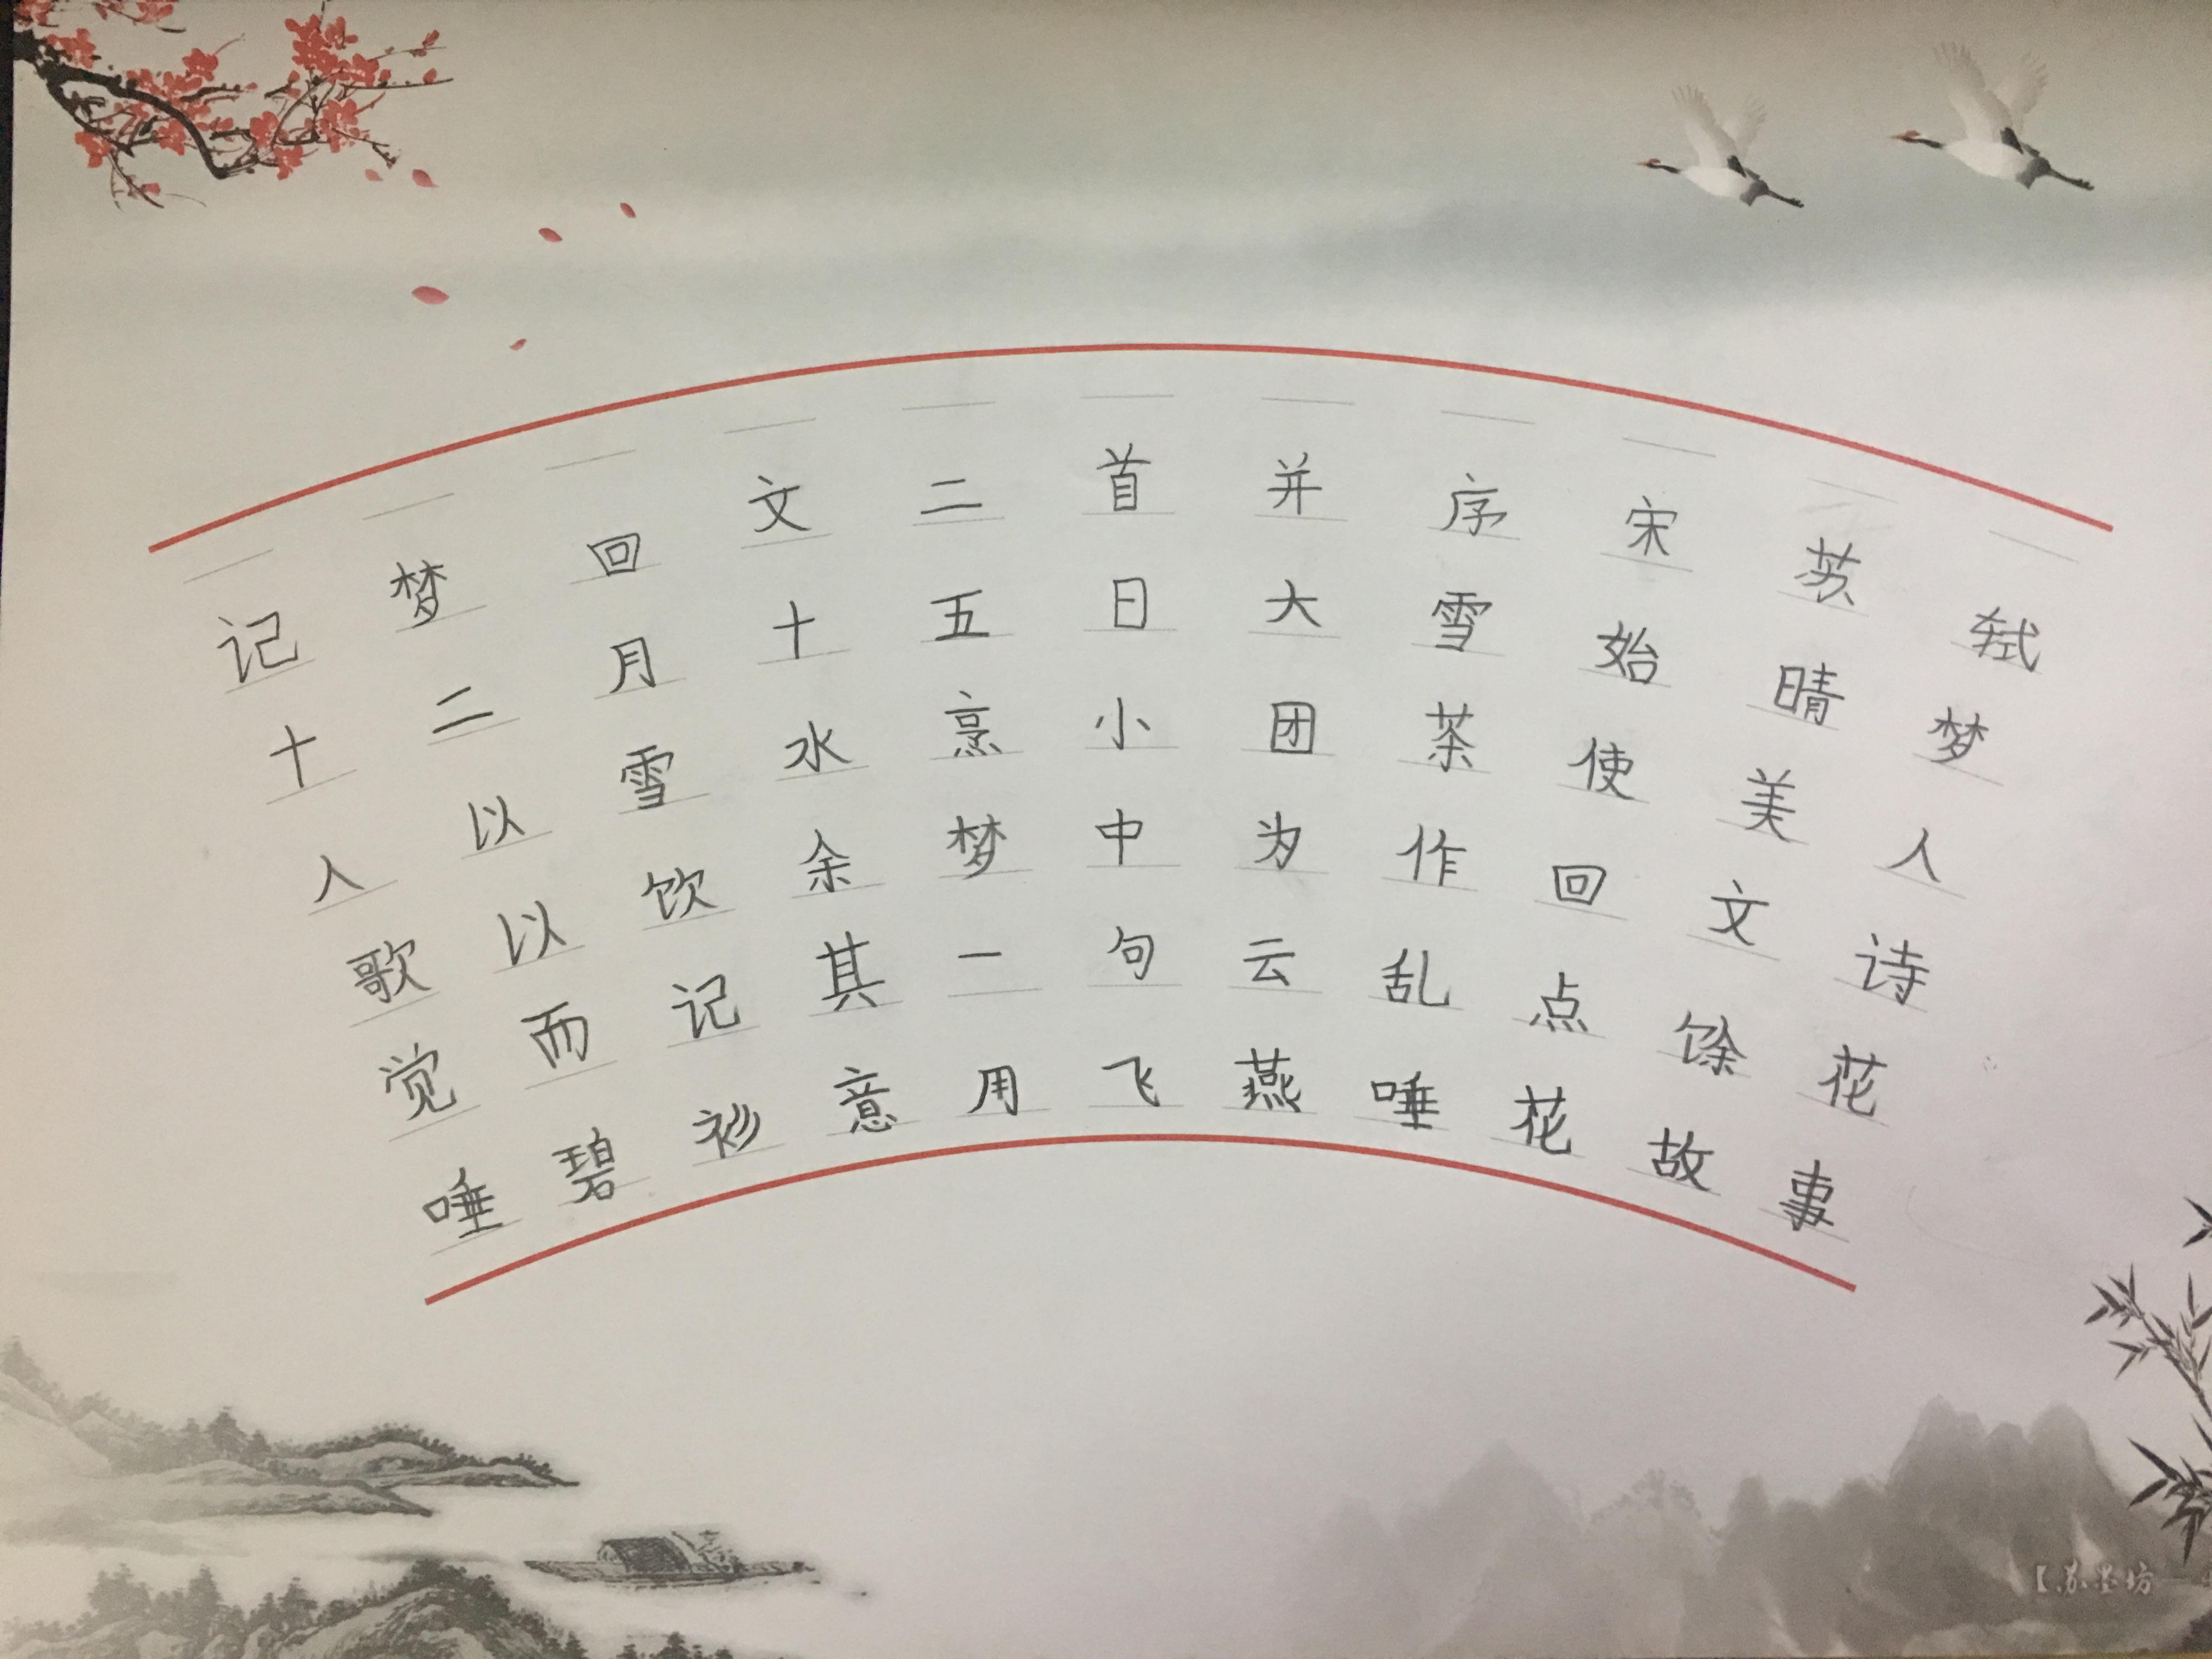 记梦回文二首并序宋苏轼
十二月十五日大雪始晴梦
人以雪水烹小团茶使美人
歌以饮余梦中为作回文诗
觉而记其一句云乱点馀花
唾碧衫意用飞燕唾花故事
【苏墨坊